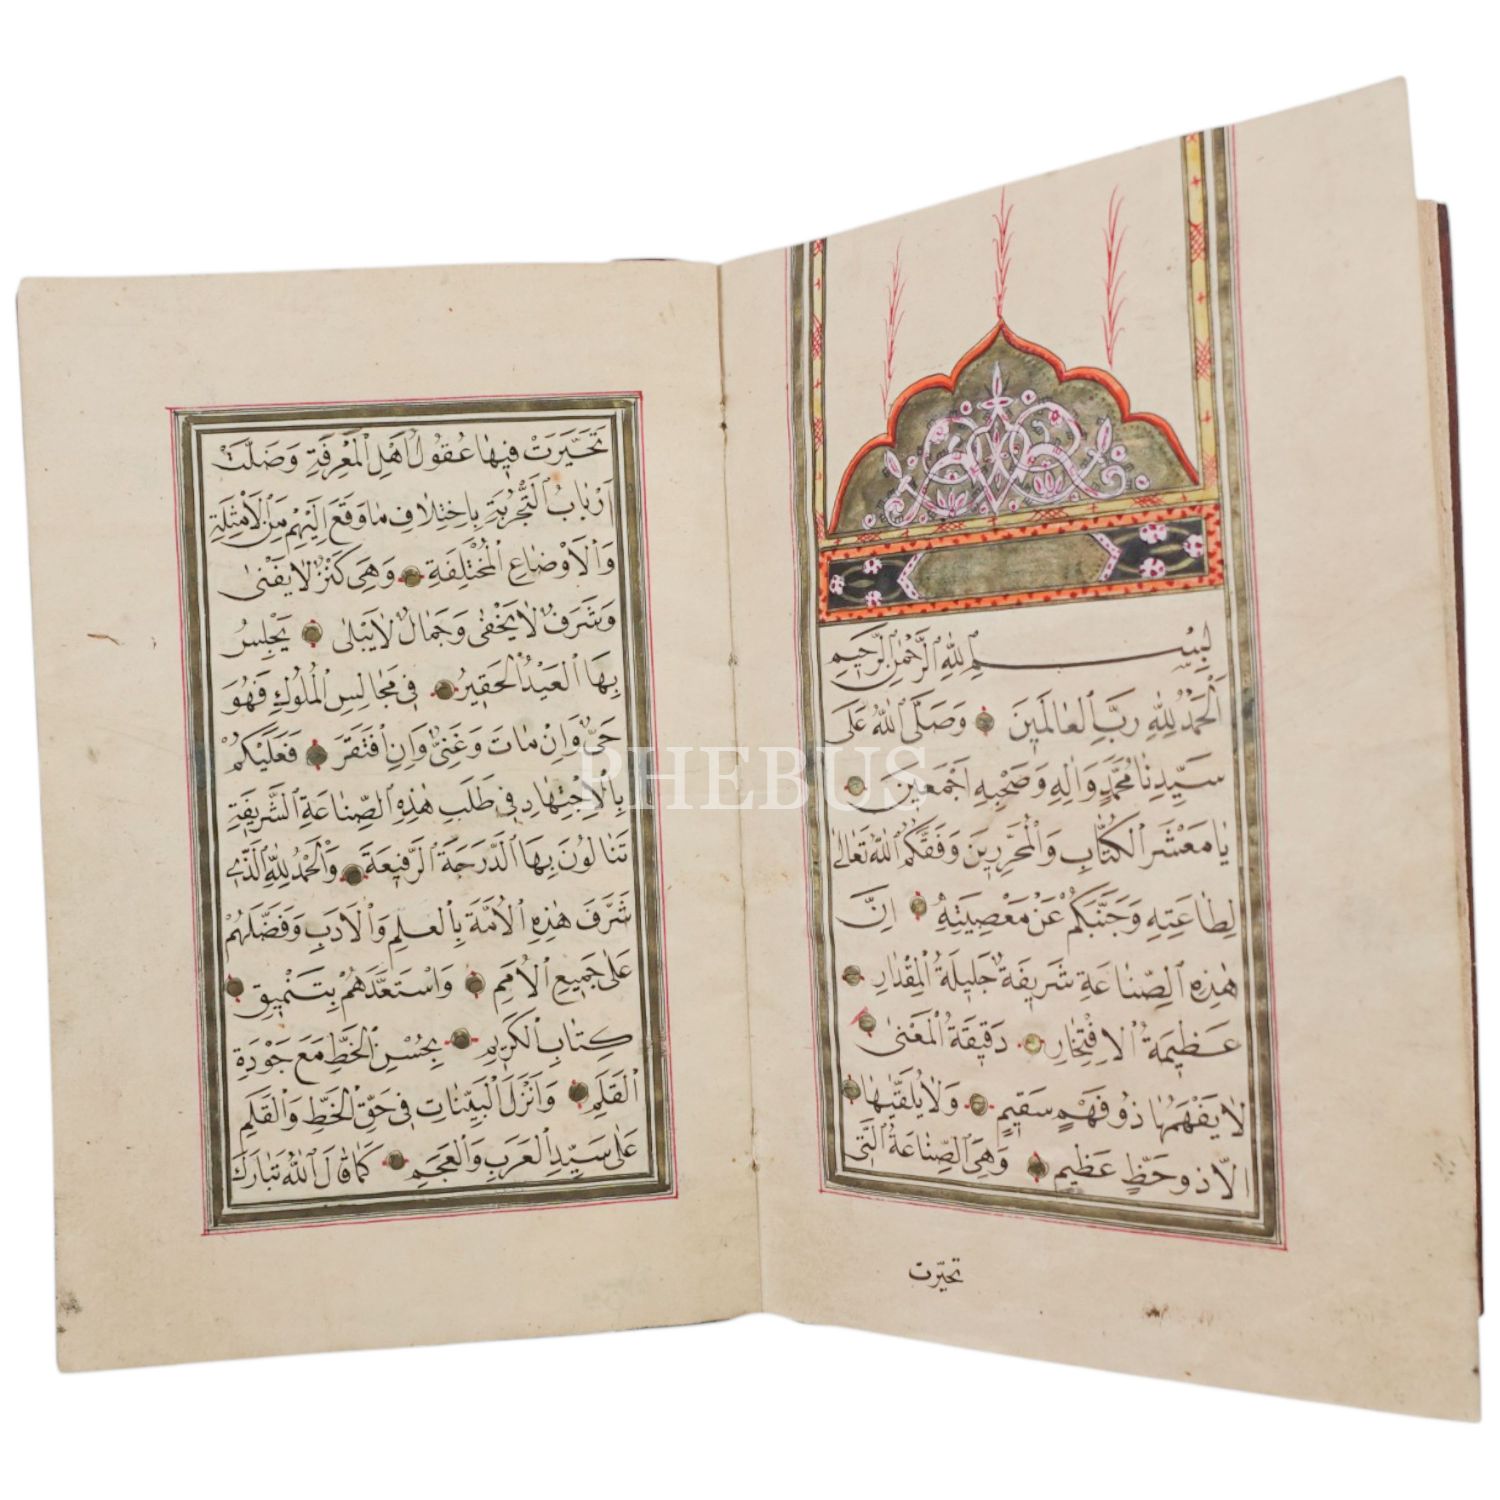 بِسْمِ اللهِ الرَّحْمٰنِ الرَّحِيمِ
اَلْحَمْدُ لِلّٰهِ رَبِّ الْعَالَمِينَ وَصَلَّى اللهُ عَلَى
سَيِّدِنَا مُحَمَّدٍ وَاٰلِهِ وَصَحْبِهِ اَجْمَعِينَ
يَا مَعْشَرَ الْكُتَّابِ وَالْمُحَرِّرِينَ وَفَقَّكُمُ اللهُ تَعَالٰى
لِطَاعَتِهِ وَجَنَّبَكُمْ عَنْ مَعْصِيَتِهِ اِنَّ
هٰذِهِ الصِّنَاعَةِ شَرِيفَةٌ جَلِيلَةُ الْمِقْدَارِ
عَظِيمَةُ الْاِفْتِخَارِ دَقِيقَةُ الْمَعْنٰى
لَا يَفْهَمُهَا ذُو فَهْمٍ سَقِيمٍ وَلَا يُلَقَّيٰهَا
اِلَّا ذُو حَظٍّ عَظِيمٍ وَهِيَ الصِّنَاعَةُ الَّتِي
تحيّرت
تَحَيَّرَتْ فِيهَا عُقُولُ اَهْلِ الْمَعْرِفَةِ وَضَلَّتْ
اَرْبَابُ التَّجْرُبَةِ بِاخْتِلَافِ مَا وَقَعَ اِلَيْهِمْ مِنَ الْاَمْثِلَةِ
وَالْاَوْضَاعِ الْمُخْتَلِفَةِ وَهِيَ كَنْزٌ لَا يَفْنٰى
وَشَرَفٌ لَا يَخْفٰى وَجَمَالٌ لَا يَبْلٰى يَجْلِسُ
بِهَا الْعَبْدُ الْحَقِيرُ فِي مَجَالِسِ الْمُلُوكِ فَهُوَ
حَيٌّ وَاِنْ مَاتَ وَغَنِيٌّ وَاِنِ افْتَقَرَ فَعَلَيْكُمْ
بِالْاِجْتِهَادِ فِي طَلَبِ هٰذِهِ الصِّنَاعَةِ الشَّرِيفَةِ
تَنَالُونَ بِهَا الدَّرَجَةَ الرَّفِيعَةَ وَالْحَمْدُ لِلّٰهِ الَّذِي
شَرَّفَ هٰذِهِ الْاُمَّةَ بِالْعِلْمِ وَالْاَدَبِ وَفَضَّلَهُمْ
عَلٰى جَمِيعِ الْاُمَمِ وَاسْتَعَدَّهُمْ بِتَنْمِيقِ
كِتَابِ الْكَرِيمِ بِحُسْنِ الْخَطِّ مَعَ جَوْدَةِ
الْقَلَمِ وَاَنْزَلَ الْبَيِّنَاتِ فِي حَقِّ الْخَطِّ وَالْقَلَمِ
عَلٰى سَيِّدِ الْعَرَبِ وَالْعَجَمِ كَمَا قَالَ اللهُ تَبَارَكَ
PHEBUS